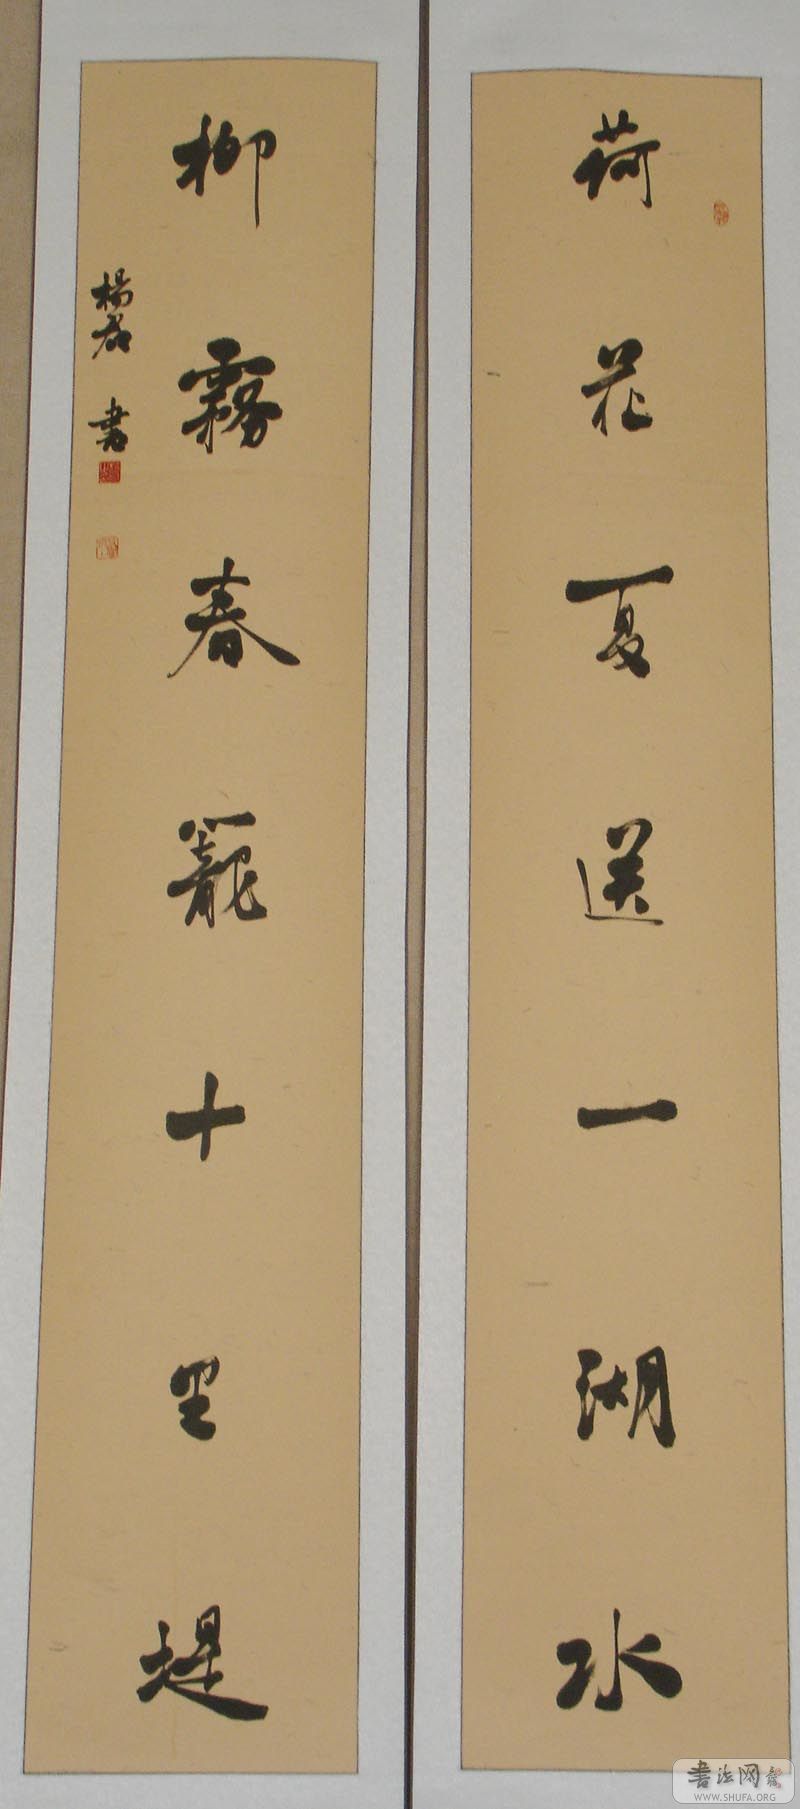 荷花夏送一湖水
柳霧春籠十里堤
楊君 書
書法网
WWW.SHUFA.ORG